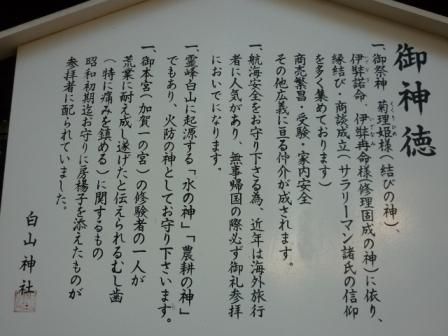 御神徳
一、御祭神 菊理姫様(結びの神)、
伊弉諾命、伊弉冉命様(修理固成の神)に依り、
縁結び・商談成立(サラリーマン諸氏の信仰
を多く集めております)
商売繁昌・受験・家内安全
その他広義に亘る仲介が成されます。
一、航海安全をお守り下さる為、近年は海外旅行
者に人気があり、無事帰国の際必ず御礼参拝
においでになります。
一、霊峰白山に起源する「水の神」「農耕の神」
でもあり、火防の神としてお守り下さいます。
一、御本宮(加賀一の宮)の修験者の一人が
荒業に耐え成し遂げたと伝えられるむし歯
(特に痛みを鎮める)に関するもの
昭和初期迄お守りに房楊子を添えたものが
参拝者に配られていました。
白山神社